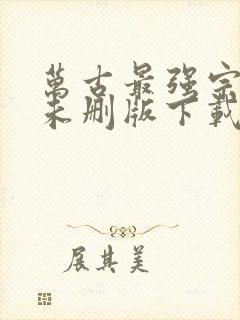 萬古最强宗
未删版下載
展其美